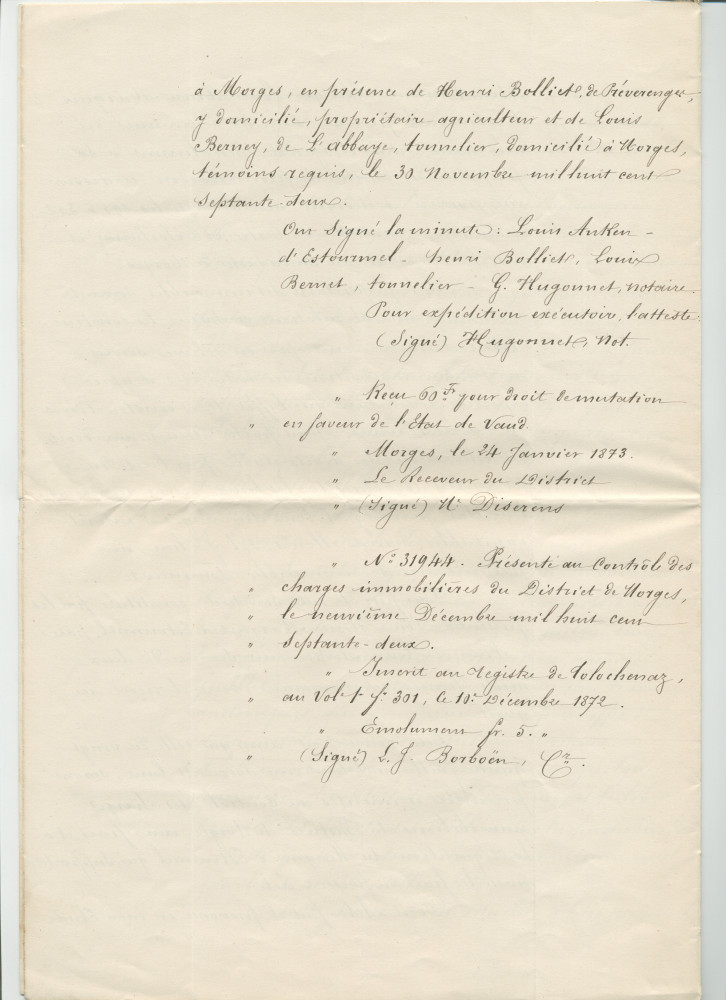 à Morges, en présence de Henri Bolliet, de Préverenges,
y domicilié, propriétaire agriculteur et de Louis
Berney, de L'abbaye, tonnelier, domicilié à Morges,
témoins requis, le 30 Novembre mil huit cent
septante-deux.
Ont Signé la minute: Louis Anken-
d'Estournel - henri Bolliet, Louis
Bernet, tonnelier - G. Hugonnet, notaire.
Pour expédition exécutoire, l'atteste:
(Signé) Hugonnet, Not.
" Reçu 60 Fr. pour droit de mutation
" en faveur de l'Etat de Vaud.
" Morges, le 24 Janvier 1873.
" Le Receveur du District
" (Signé) Diserens
" No 31944. Présenté au Contrôle des
" charges immobilières du District de Morges,
" le neuvième Décembre mil huit cent
" septante-deux.
" Inscrit au registre de Tolochenaz,
" au Vol. 1 fo. 301, le 10e Décembre 1872.
" Émolument fr. 5. "
" (Signé) L. J. Borboën, Cr.